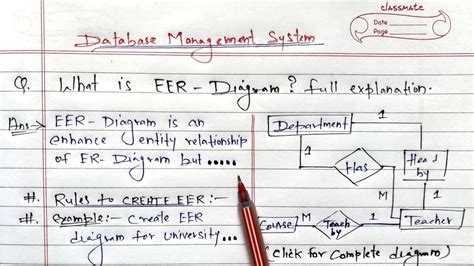 classmate
Date
Page
Database Management System
Q. What is EER-Diagram? full explanation.
Ans→ EER-Diagram is an
enhance entity relationship
of ER-Diagram but.....
#. Rules to CREATE EER:-
#. Example:- Create EER
diagram for university...
Department
1
1
Has
Head
by
M
1
Course
M
Teach
by
1
Teacher
(Click for Complete diagram)